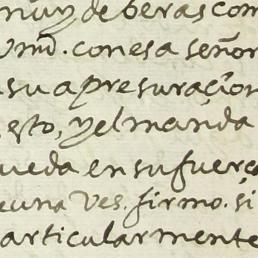 muy de beras com
Vmd. con esa señor
su apresuración
esto, y el manda
ueda en su fuerça
cuna Ves. firmo. si
articularmente